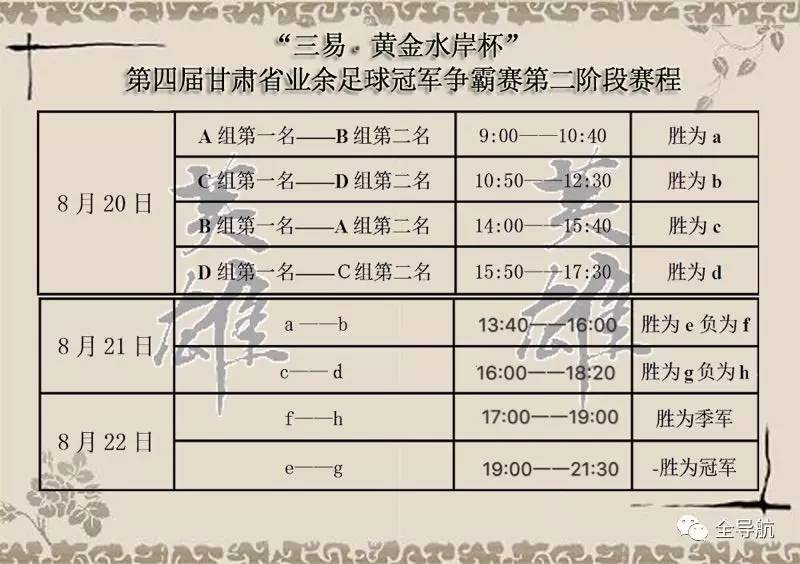 “三易·黄金水岸杯”
第四届甘肃省业余足球冠军争霸赛第二阶段赛程
8月20日
A组第一名——B组第二名 9:00——10:40 胜为a
C组第一名——D组第二名 10:50——12:30 胜为b
B组第一名——A组第二名 14:00——15:40 胜为c
D组第一名——C组第二名 15:50——17:30 胜为d
8月21日
a——b 13:40——16:00 胜为e负为f
c——d 16:00——18:20 胜为g负为h
8月22日
f——h 17:00——19:00 胜为季军
e——g 19:00——21:30 -胜为冠军
英雄 英雄
全导航